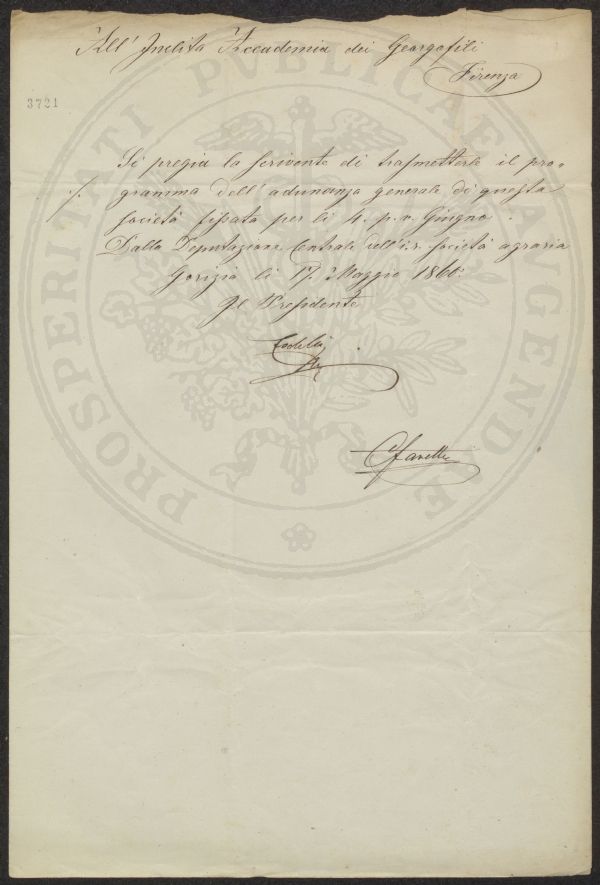 All' Inclita Accademia dei Georgofili
Firenze
3721
Si pregia la scrivente di trasmetterle il pro=
./. gramma dell'adunanza generale di questa
società fissata per li 4. p. v. Giugno.
Dalla Deputazione Centrale dell'i. r. società agraria
Gorizia li 17. Maggio 1860.
Il Presidente
Codelli
PROSPERITATI PVBLICAE AVGENDAE